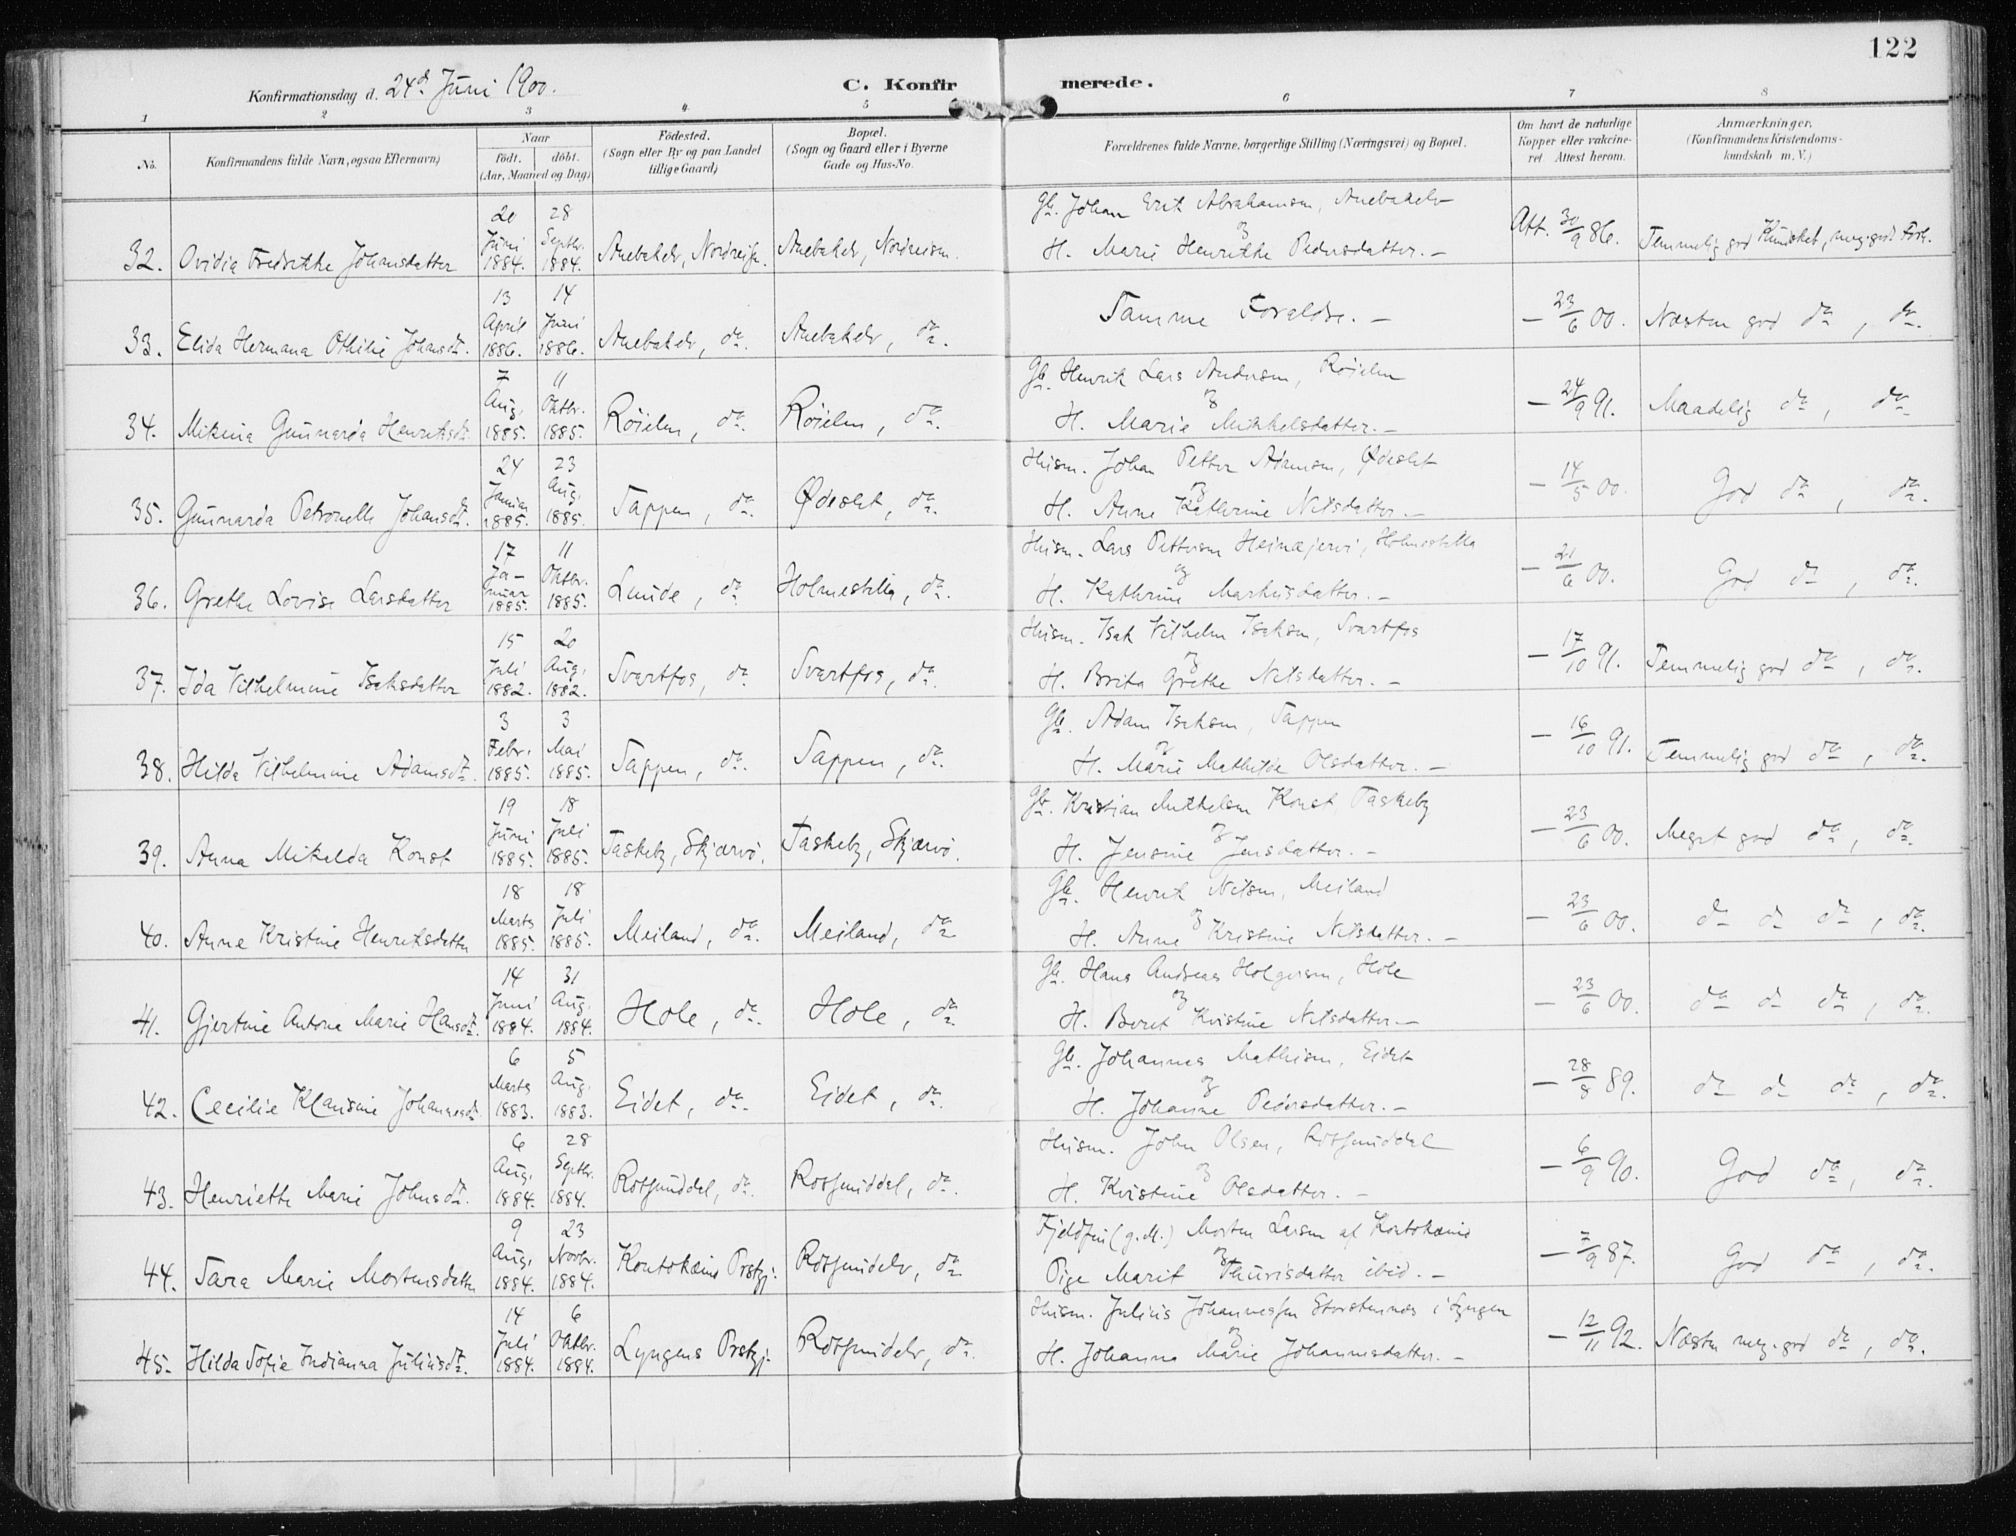 122
Konfirmationsdag d. 24d Juni 1900.
C. Konfirmerede.
1 2 3 4 5 6 7 8
No. Konfirmandens fulde Navn, ogsaa Efternavn) Naar født. døbt. (Aar, Maaned og Dag) Fødested. (Sogn eller By og paa Landet tillige Gaard) Bopæl. (Sogn og Gaard eller i Byerne Gade og Hus-No. Forældrenes fulde Navne, borgerlige Stilling (Næringsvei) og Bopæl. Om havt de naturlige Kopper eller vakcineret Attest herom. Anmærkninger. (Konfirmandens Kristendomskundskab m. V.)
32. Ovidia Fredrikke Johansdatter 20 Juni 1884. 28 Septbr. 1884. Nordreisa. Gbr. Johan Erik Abrahamsen, og H. Marie Henrikke Pedersdatter. – Att. 30/9 86. Temmelig god Kundskab, meg. god Forh.
33. Elida Hermana Othilie Johansdtr. 13 April 1886. 14 Juni 1886. do. do. Samme Forældre. – – 23/6 00. Næsten god do, do.
34. Mikina Gunnarda Henriksdtr. 7 Aug. 1885. 11 Oktbr. 1885. Røielen, do. Røielen, do. Gbr. Henrik Lars Andersen, Røielen og H. Marie Mikkelsdatter. – – 24/9 91. Maadelig do, do.
35. Gunnarda Petronelle Johansdtr. 24 Januar 1885. 23 Aug. 1885. Sappen, do. Ødeslet, do. Husm. Johan Petter Adamsen, Ødeslet og H. Anne Kathrine Nilsdatter. – – 14/5 00. God do, do.
36. Grethe Lovise Larsdatter 17 Januar 1885. 11 Oktbr. 1885. Lunde, do. Holmestilla, do. Husm. Lars Pettersen Heinæjervi, Holmestilla og H. Kathrine Markusdatter. – – 21/6 00. God do, do.
37. Ida Vilhelmine Isaksdatter 15 Juli 1882. 20 Aug. 1882. Svartfos, do Svartfos, do. Husm. Isak Vilhelm Isaksen, Svartfos og H. Brita Grethe Nilsdatter. – – 17/10 91. Temmelig god do, do.
38. Hilda Vilhelmine Adamsdtr. 3 Febr. 1885. 3 Mai 1885. Sappen, do. Sappen, do. Gbr. Adam Isaksen, Sappen og H. Marie Mathilde Olsdatter. – – 16/10 91. Temmelig god do, do.
39. Anna Mikalda Konst 19 Juni 1885. 18 Juli 1885. Taskeby, Skjærvø. Taskeby, Skjærvø. Gbr. Kristian Mikkelsen Konst Taskeby og H. Jensine Jensdatter. – – 23/6 00. Meget god do, do.
40. Anne Kristine Henriksdatter 18 Marts 1885. 18 Juli 1885. Meiland, do. Meiland, do. Gbr. Henrik Nilsen, Meiland og H. Anne Kristine Nilsdatter. – – 23/6 00. do do do, do.
41. Gjertine Antone Marie Hansdtr. 14 Juni 1884. 31 Aug. 1884. Hole, do. Hole, do. Gbr. Hans Andreas Holgersen, Hole og H. Beret Kristine Nilsdatter. – – 23/6 00. do do do, do.
42. Cecilie Klausine Johannesdtr. 6 Marts 1883. 5 Aug. 1883. Eidet, do. Eidet, do. Gbr. Johannes Mathisen, Eidet og H. Johanne Pedersdatter. – – 28/8 89. do do do, do.
43. Henriette Marie Johnsdtr. 6 Aug. 1884. 28 Septbr. 1884. Rotsunddal, do. Rotsunddal, do. Husm. John Olsen, Rotsunddal og H. Kristine Olsdatter. – – 6/9 90. God do, do.
44. Sara Marie Mortensdatter 9 Aug. 1884. 23 Novbr. 1884. Koutokæino Prstgj. Rotsundelv, do Fjeldfin (g. M.) Morten Larsen af Koutokæino og Pige Marit Thurisdatter ibid. – – 7/9 87. God do, do.
45. Hilda Sofie Indianna Juliusdtr. 14 Juli 1884. 6 Oktbr. 1884. Lyngens Prstgj. Rotsundelv, do. Husm. Julius Johannessen Storstennes i Lyngen og H. Johanna Marie Johannesdatter. – – 12/11 92. Næsten meg. god do, do.